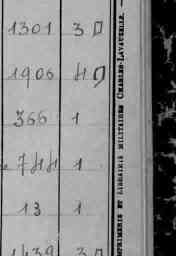 1301 3
1906 4
366 1
744 1
13 1
1439 3
IMPRIMERIE ET LIBRAIRIE MILITAIRES CHARLES-LAVAUZELLE.